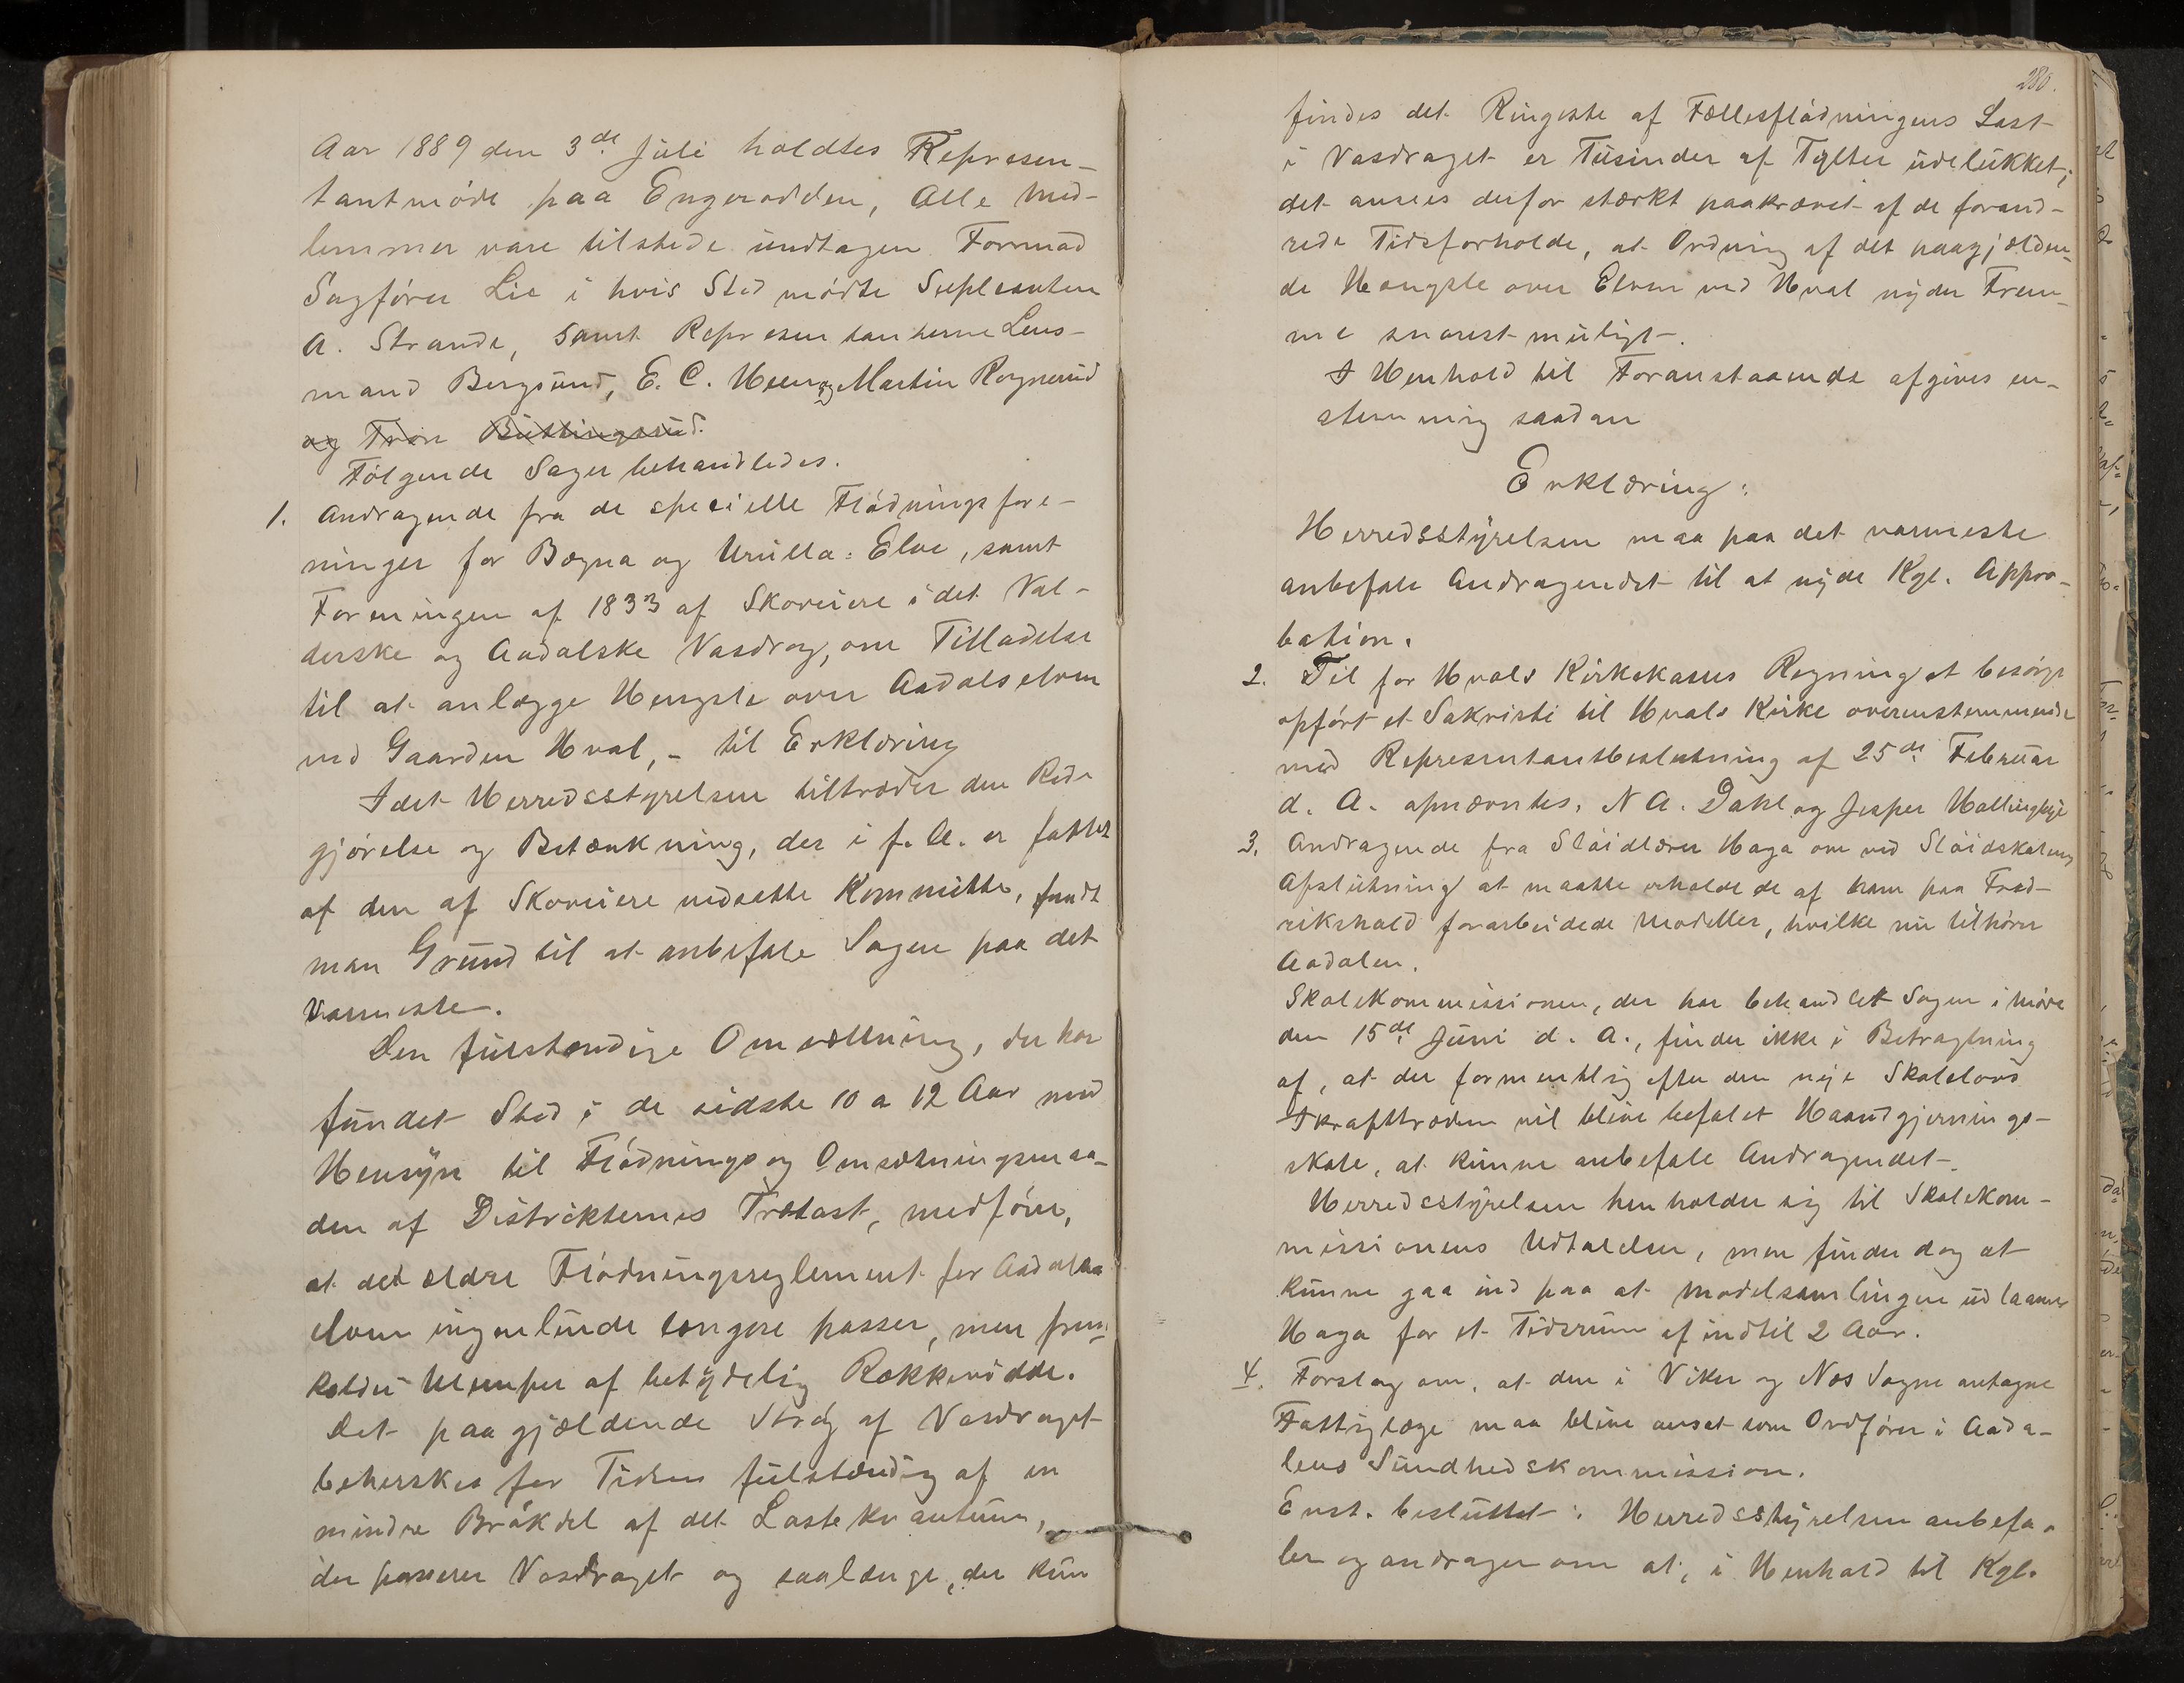 Aar 1889 den 3de Juli holdtes Represen-
tantmøde paa Engerodden, Alle Med-
lemmer vare tilstede undtagen Formad
Sagfører Lie i hvis Sted mødte Supleanten
A. Strande, samt Representanterne Lens-
mand Bergsund, E. C. Heen og Martin Rognerud
og Tron Buttingsrud.
Følgende Sager behandledes.
1. Andragende fra de specielle Flødningsfore-
ninger for Bægna og Urulla-Elve, samt
Foreningen af 1833 af Skoveiere i det Val-
derske og Aadalske Vasdrag, om Tilladelse
til at anlægge Hengsle over Aadalselven
ved Gaarden Hval, - til Erklæring
Idet Herredsstyrelsen tiltræder den Rede
gjørelse og Betænkning, der i f. A. er fattet
af den af Skoveiere nedsatte Kommitte, fandt
man Grund til at anbefale Sagen paa det
varmeste.
Den fulstendige Omvæltning, der har
fundet Sted i de sidste 10 a 12 Aar med
Hensyn til Flødnings og Omsætningsmaa-
den af Distrikternes Trælast, medfører,
at det ældre Flødningsreglement for Aadals
elven ingenlunde længere passer, men frem-
kalder Ulemper af betydelig Rækkevidde.
Det paagjældende Strøg af Vasdraget
beherskes for Tiden fulstændig af en
mindre Brøkdel af det Lastekvantum,
der passerer Vasdraget og saalænge, der kun
280.
findes det Ringeste af Fællesflødningens Last
i Vasdraget er Tusinder af Tylter udelukket;
det ansees derfor stærkt paakrævet af de forand-
rede Tidsforholde, at Ordning af det paagjælden-
de Hengsle over Elven ved Hval nyder Frem-
me snarest muligt.
I Henhold til Foranstaaende afgives en-
stemmig saadan
Erklæring:
Herredsstyrelsen maa paa det varmeste
anbefale Andragendet til at nyde Kgl. Appro-
bation.
2. Til for Hvals Kirkekasses Regning at besørge
opført et Sakristi til Hvals Kirke overenstemmende
med Representantbeslutning af 25de Februar
d. A. opnævntes, N A. Dahl og Jesper Hallingbye
3. Andragende fra Sløidlærer Haga om ved Sløidskolens
Afslutning at maatte erholde de af ham paa Fred-
rikshald forarbeidede Modeller, hvilke nu tilhører
Aadalen.
Skolekommissionen, der har behandlet Sagen i Møde
den 15de Juni d. A., finder ikke i Betragtning
af, at der formentlig efter den nye Skolelovs
Ikrafttræden vil blive befalet Haandgjernings-
skole, at kunne anbefale Andragendet.
Herredsstyrelsen henholder sig til Skolekom-
missionens Udtalelser, men finder dog at
kunne gaa ind paa at Modelsamlingen udlaanes
Haga for et Tidsrum af indtil 2 Aar.
4. Forslag om, at den i Viker og Næs Sogne antagne
Fattiglæge maa blive anset som Ordfører i Aada-
lens Sundhedskommission.
Enst. besluttet: Herredsstyrelsen anbefa-
ler og andrager om at, i Henhold til Kgl.